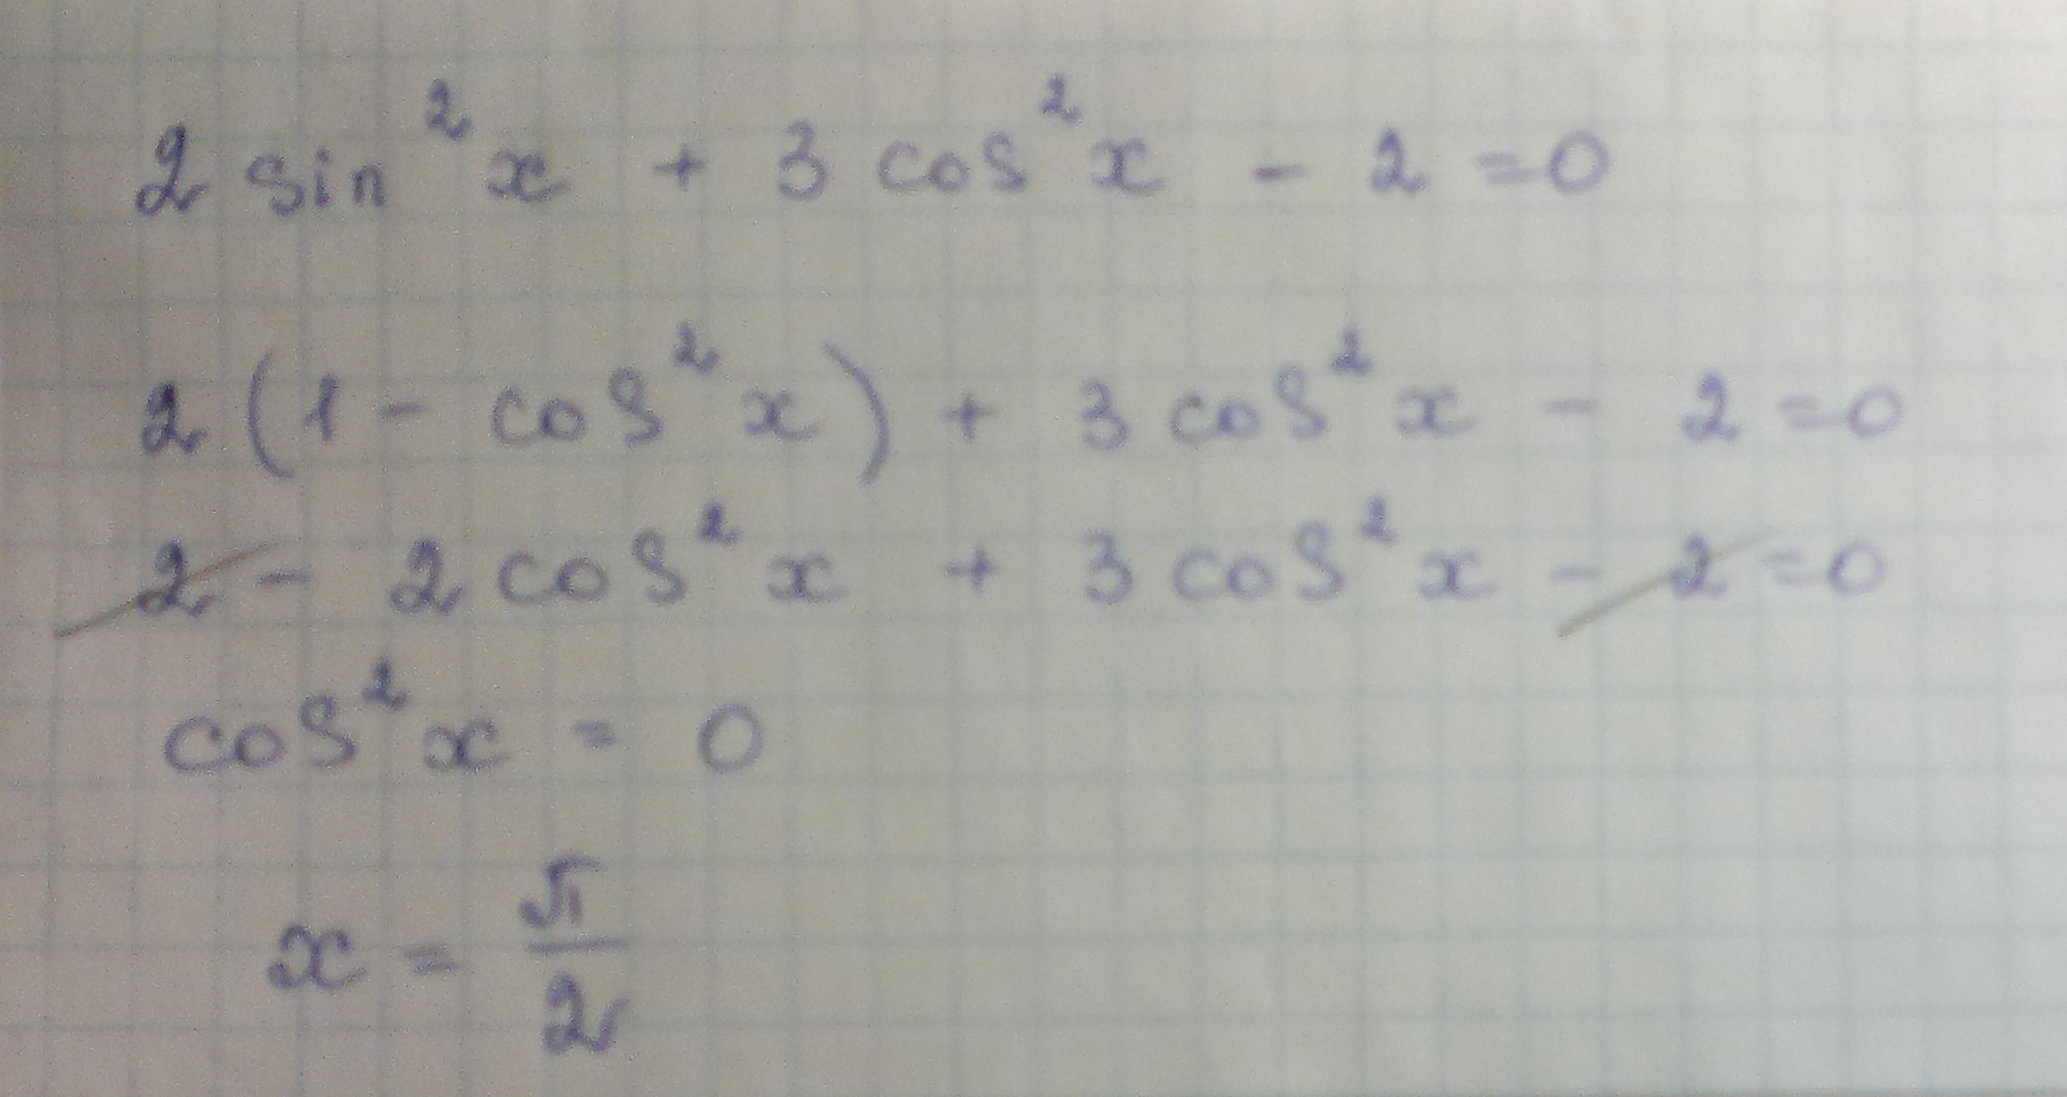 2 sin²x + 3 cos²x - 2 = 0
2 (1 - cos²x) + 3 cos²x - 2 = 0
2 - 2 cos²x + 3 cos²x - 2 = 0
cos²x = 0
x = π/2